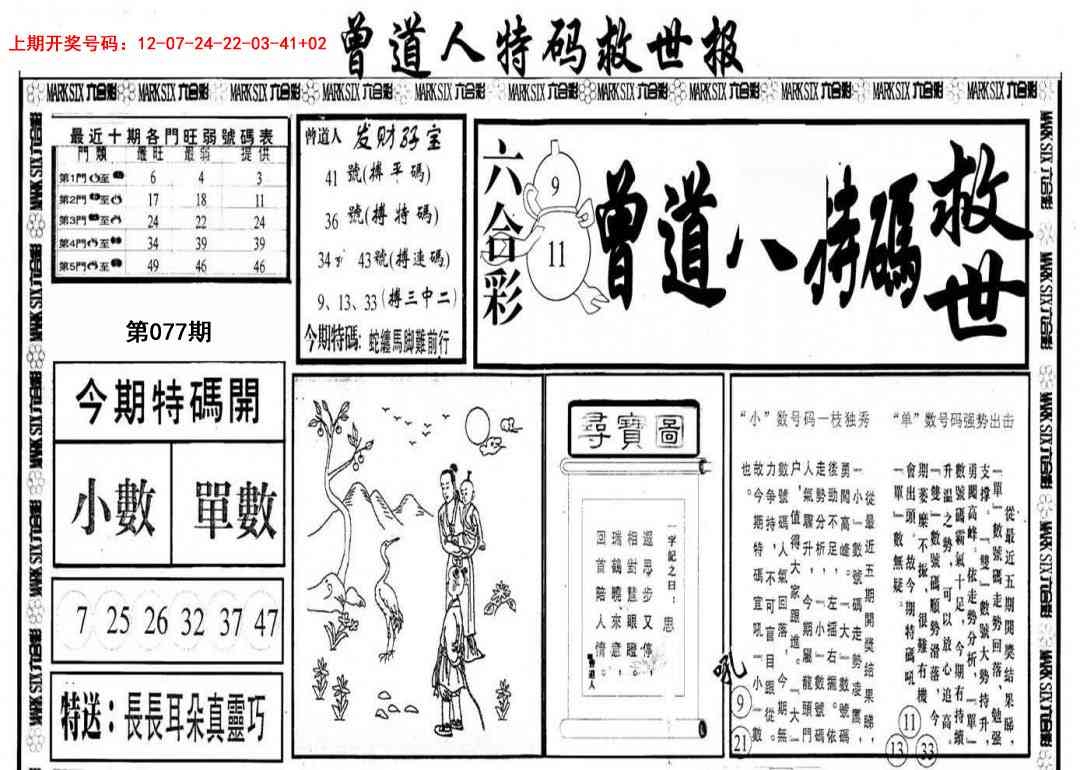 上期开奖号码：12-07-24-22-03-41+02
曾道人特码救世报
MARK SIX 六合彩 MARK SIX 六合彩 MARK SIX 六合彩 MARK SIX 六合彩 MARK SIX 六合彩 MARK SIX 六合彩 MARK SIX 六合彩 MARK SIX 六合彩 MARK SIX 六合彩 MARK SIX 六合彩 MARK SIX 六合彩
最近十期各門旺弱號碼表
門類 最旺 最弱 提供
第1門 至 6 4 3
第2門 至 17 18 11
第3門 至 24 22 24
第4門 至 34 39 39
第5門 至 49 46 46
第077期
今期特碼開
小數 單數
7 25 26 32 37 47
特送：長長耳朵真靈巧
曾道人 发财孖宝
41 號(搏平碼)
36 號(搏特碼)
34 43號(搏連碼)
9、13、33(搏三中二)
今期特碼：蛇纏馬脚難前行
六合彩
9
11
曾道人特碼救世
尋寶圖
一字記之曰：思
遐思步又停，
相對慧眼瞪。
瑞鶴曉來意，
回首陪人情。
曾道人
“小”数号码一枝独秀
從最近五期開獎結果睇，
「小」數號碼走勢凌厲，
勇闖高峰。「大」數號碼
後勁不足，左搖右擺。依
走勢分析，「小」數號碼
人氣驟升，今期屬龍頭門
户，值得大家跟進。「大」
數號碼人氣回落，今期無
力争持，不可盲目跟從。
故今期特碼宜吼「小」數
也。
吼
9
21
“单”数号码强势出击
從最近五期開獎结果睇，
「單」數號碼走勢回落，勉强
支撑。「雙」數號大勢持升，
勇闖高峰。依走勢分析，「單」
數號碼霸氣十足，今期有持續
升温之勢，可以放心追高。
「雙」數號碼順勢滑落，今
期萎縻不振，很難有機
會出頭。故今期特碼吼
「單」數無疑。
11
13
33